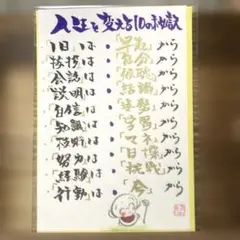 人生を変える10の心構え
「1日」は「早起」から
「挨拶」は「自分」から
「会話」は「傾聴」から
「説明」は「結論」から
「自信」は「準備」から
「知識」は「学習」から
「技術」は「マネ」から
「努力」は「目標」から
「経験」は「挑戦」から
「行動」は「今」から